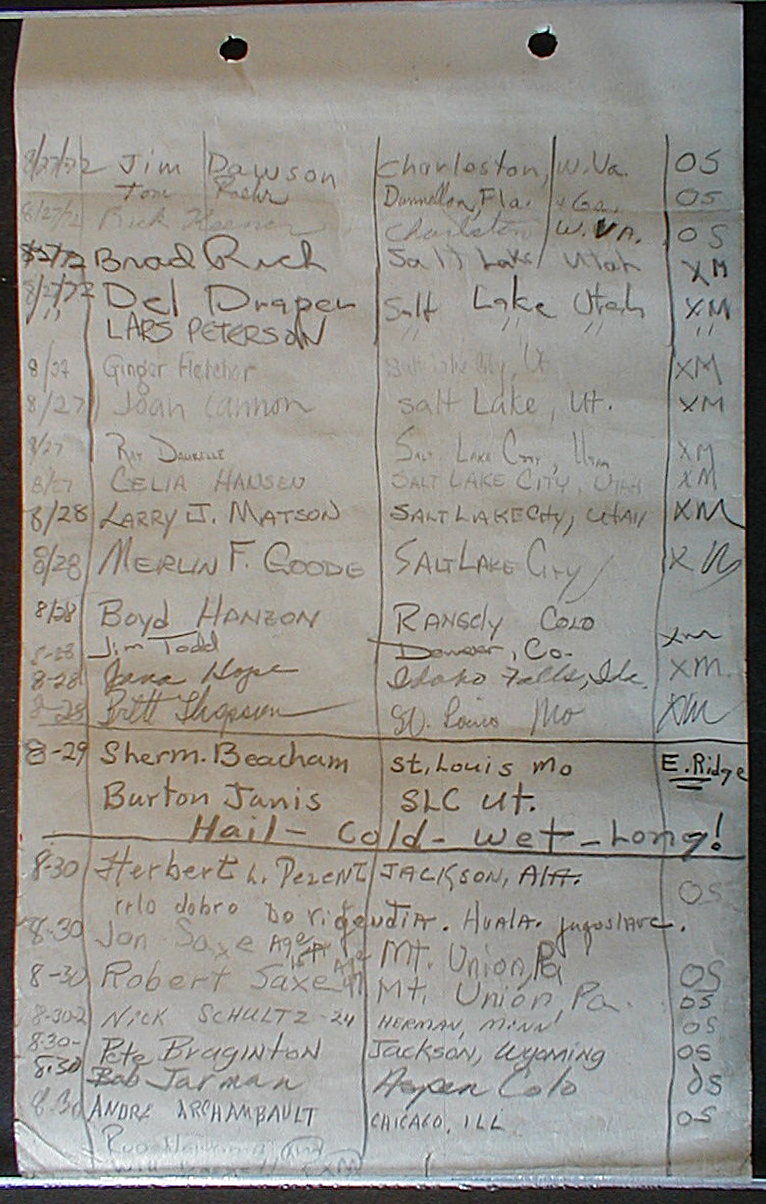 8/27/72 Jim Dawson Charleston, W.Va. OS
Tom Dunnellon, Fla. + Ga. OS
8/27/72 Rick Charleston W.VA. OS
8/27/72 Brad Rich Salt Lake Utah XM
8/27/72 Del Draper Salt Lake Utah XM
" LARS PETERSON " " "
8/27 Ginger Fletcher Salt Lake City, Ut. XM
8/27 Joan Cannon Salt Lake, Ut. XM
8/27 RAY SALT LAKE CITY, UTAH XM
8/27 CELIA HANSEN SALT LAKE CITY, UTAH XM
8/28 LARRY J. MATSON SALT LAKE CITY, UTAH XM
8/28 MERLIN F. GOODE SALT LAKE CITY XM
8/28 Boyd HANZON RANGELY COLO
8-28 Jim Todd Denver, Co. XM
8-28 Jana Hope Idaho Falls, Ida. XM
8-28 Brett St. Louis Mo XM
8-29 Sherm. Beacham St. Louis Mo E. Ridge
Burton Janis SLC Ut.
Hail - Cold - Wet - Long!
8-30 Herbert L. JACKSON, Ala. OS
dobro Do HVALA.
8-30 Jon Saxe Age Mt. Union, Pa
8-30 Robert Saxe Age Mt. Union, Pa. OS
8-30-2 NICK SCHULTZ - 24 HERMAN, MINN OS
8-30- Pete BRAGINTON Jackson, Wyoming OS
8-30 Bob Jarman Aspen Colo OS
8-30 ANDRE ARCHAMBAULT CHICAGO, ILL OS
XM